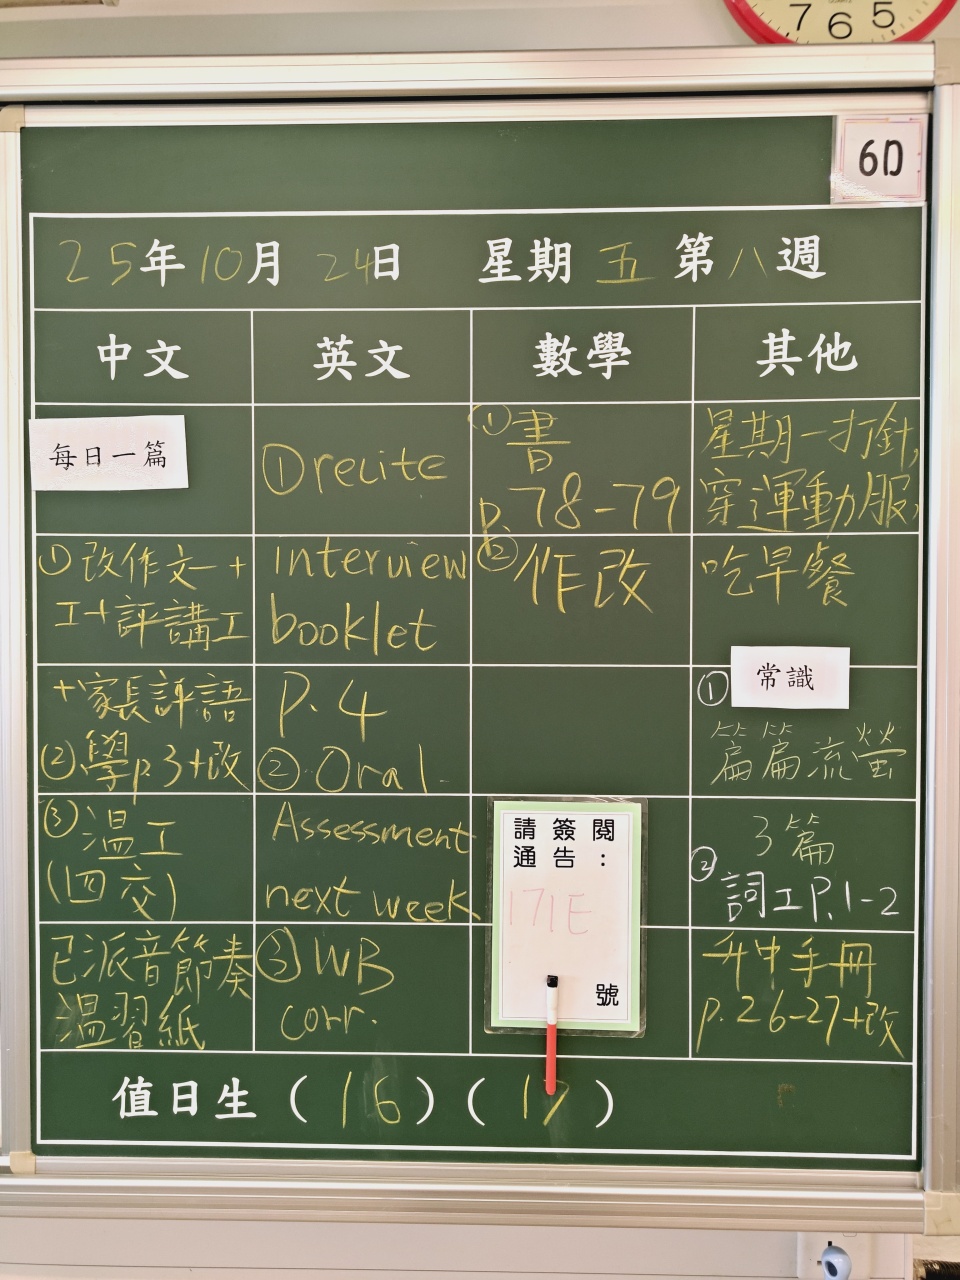 7 6 5
6D
25年10月24日 星期五第八週
中文 英文 數學 其他
每日一篇
①改作文一+
工+評講工
+家長評語
②學p3+改
③溫工
(四交)
已派音節奏
溫習紙
①recite
interview
booklet
P.4
②Oral
Assessment
next week
③WB
corr.
①書
p.78-79
②作改
請簽閱
通告:
171E
號
星期一打針,
穿運動服,
吃早餐
①常識
篇篇流螢
3篇
②詞工P.1-2
升中手冊
p.26-27+改
值日生(16)(17)